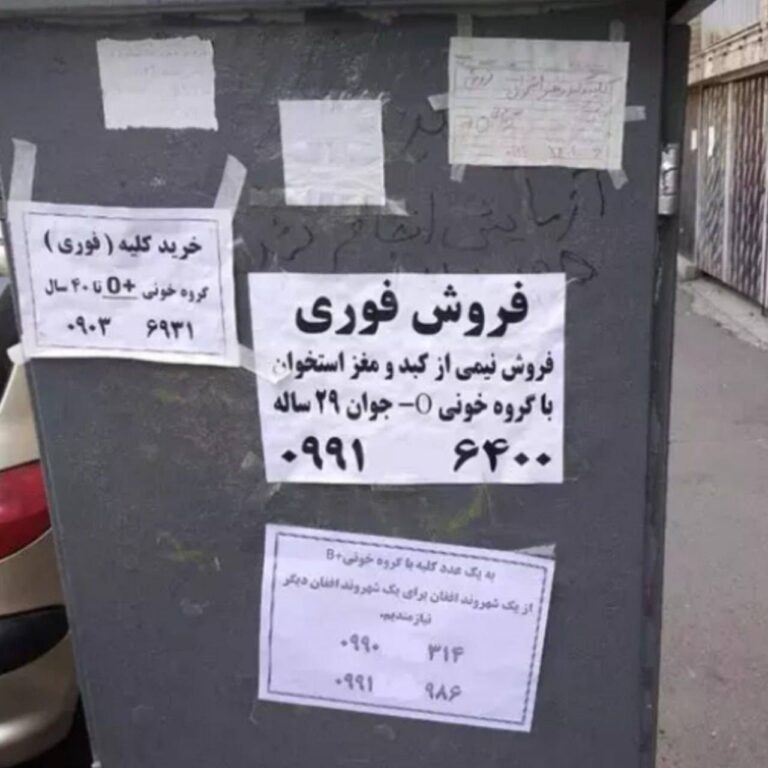 خرید کلیه ( فوری )
گروه خونی +O تا ۴۰ سال
۰۹۰۳ ۶۹۳۱
فروش فوری
فروش نیمی از کبد و مغز استخوان
با گروه خونی O- جوان ۲۹ ساله
۰۹۹۱ ۶۴۰۰
به یک عدد کلیه با گروه خونی+B
از یک شهروند افغان برای یک شهروند افغان دیگر
نیازمندیم.
۰۹۹۰ ۳۱۴
۰۹۹۱ ۹۸۶
آزمایش انجام